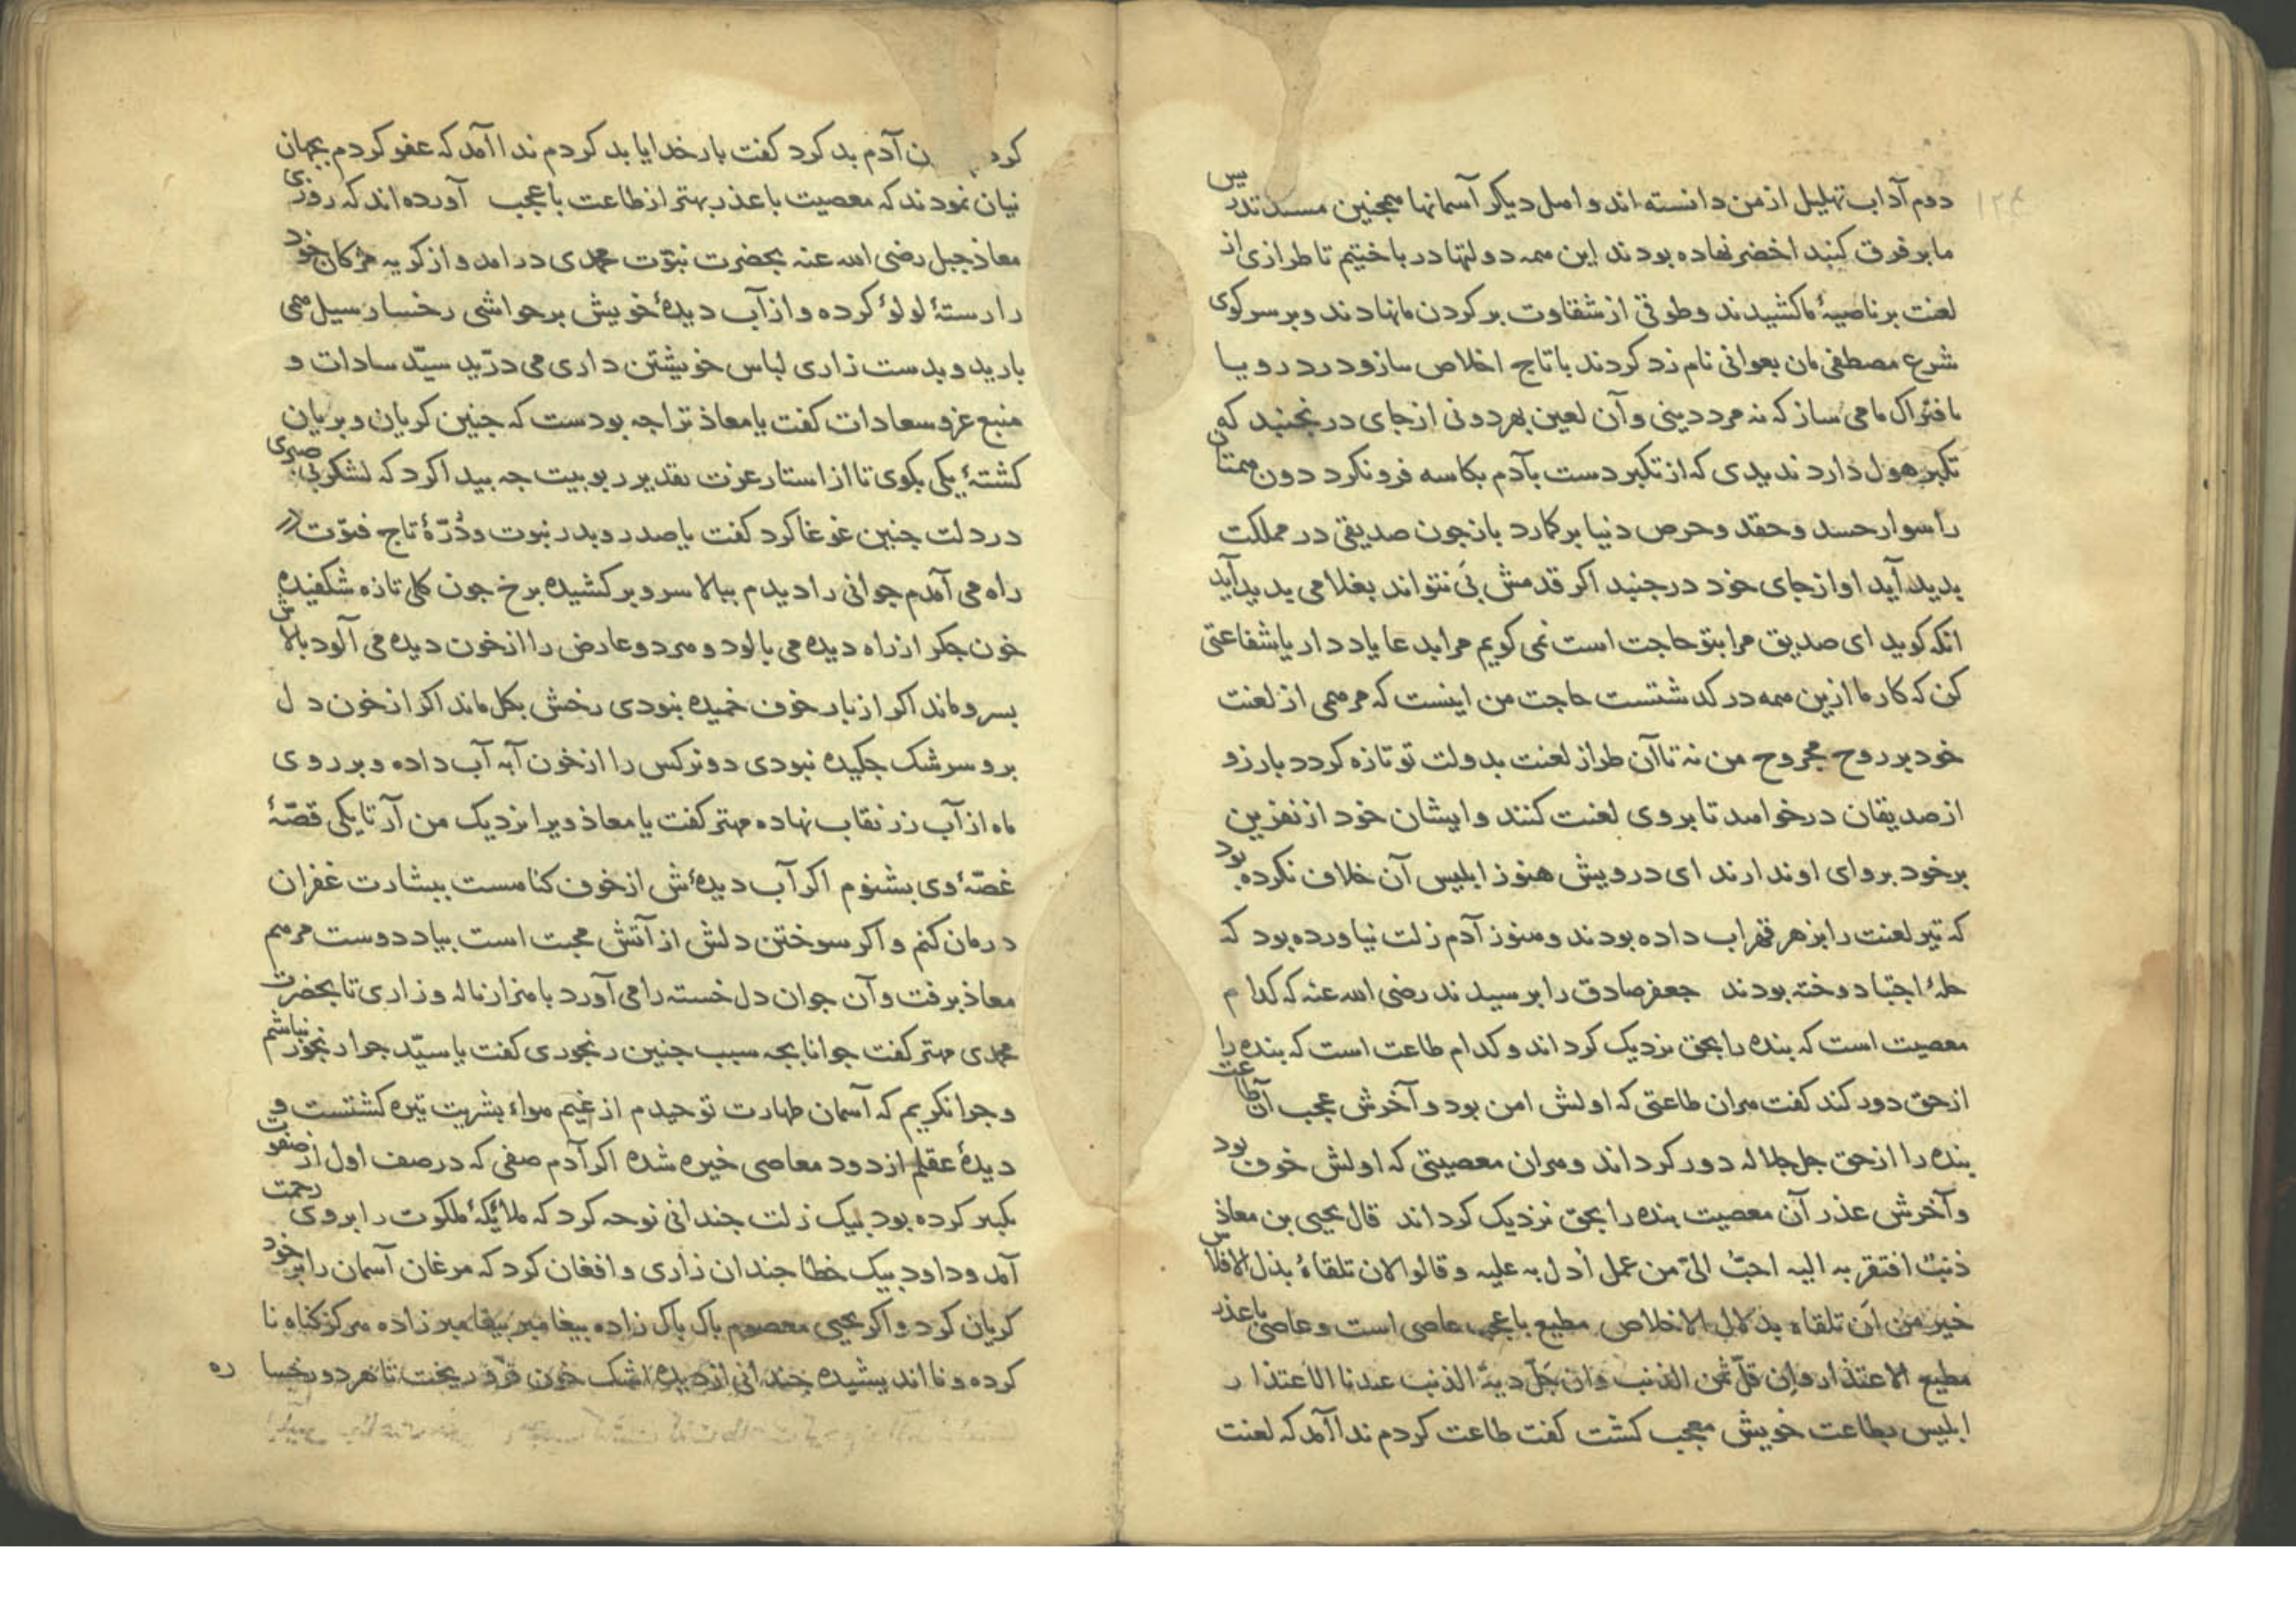 دوم آداب تهلیل از من دانسته اند و اهل دیکر آسمانها همجنین مسند تدریس
ما بر فرق کنبد اخضر نهاده بودند این همه دولتها در باختیم تا طرازی از
لعنت بر ناصیهٔ ما کشیدند و طوقی از شقاوت بر کردن ما نهادند و بر سر کوی
شرع مصطفی مان بعوانی نام زد کردند با تاج اخلاص سازو درد رو یا
ما فتراک ما می ساز که نه مرد دینی و آن لعین بهر دونی از جای در نجنبد که
تکبر هول دارد ندیدی که از تکبر دست بآدم بکاسه فرو نکرد دون همتان
را سوار حسد و حقد و حرص دنیا بر کمارد باز جون صدیقی در مملکت
بدید آید او از جای خود در جنبد اکر قدمش پی نتواند بغلامی بدید آید
انکه کوید ای صدیق مرا بتو حاجت است نمی کویم مرا بدعا یاد دار یا شفاعتی
کن که کار ما ازین همه در کدشتست حاجت من اینست که مرهمی از لعنت
خود بر روح مجروح من نه تا آن طراز لعنت بدولت تو تازه کردد بارزو
از صدیقان درخواهد تا بر وی لعنت کنند و ایشان خود از نفرین
بر خود بروای او ندارند ای درویش هنوز ابلیس آن خلاف نکرده بود
که تیر لعنت را بزهر قهر اب داده بودند و هنوز آدم زلت نیاورده بود که
حلهٔ اجتبا دوخته بودند جعفر صادق را برسیدند رضی الله عنه که کدام
معصیت است که بنده را بحق نزدیک کرداند و کدام طاعت است که بنده را
از حق دور کند کفت هران طاعتی که اولش امن بود و آخرش عجب آن طاعت
بنده را از حق جل جلاله دور کرداند و هران معصیتی که اولش خوف بود
و آخرش عذر آن معصیت بنده را بحق نزدیک کرداند قال یحیی بن معاذ
ذنبٌ افتقر به الیه احبّ الیّ من عمل اُدل به علیه و قالوا لان تلقاهُ بذل الافلاس
خیر من اَن تلقاه بدلال الاخلاص مطیع با عجب عاصی است و عاصی با عذر
مطیع الاعتذار و اِن قلّ ثمن الذنب و ان جَلّ دیة الذنب عندنا الاعتذار
ابلیس بطاعت خویش معجب کشت کفت طاعت کردم ندا آمد که لعنت
کردم آدم بد کرد کفت بار خدایا بد کردم ندا آمد که عفو کردم بجهان
نیان نمودند که معصیت با عذر بهتر از طاعت با عجب آورده اند که روزی
معاذ جبل رضی الله عنه بحضرت نبوّت محمدی درامد و از کریه مژکان خود
را رستهٔ لولؤ کرده و از آب دیدهٔ خویش بر حواشی رخسار سیل همی
بارید و بدست زاری لباس خویشتن داری می درّید سیّد سادات و
منبع عز و سعادات کفت یا معاذ ترا جه بودست که جنین کریان و بریان
کشتهٔ یکی بکوی تا از استار عزت تقدیر ربوبیت جه بیدا کرد که لشکر بی صبری
در دلت جنین غوغا کرد کفت یا صدر و بدر نبوت و دُرّهٔ تاج فتوّت در
راه می آمدم جوانی را دیدم ببالا سرو بر کشیده برخ جون کلی تازه شکفیده
خون جکر از راه دیده می بالود و هر دو عارض را از خون دیده می آلود بالاش
بسرو ماند اکر از بار خوف خمیده نبودی رخش بکل ماند اکر از خون دل
برو سرشک جکیده نبودی دو نرکس را از خون آبه آب داده و بر روی
ماه از آب زر نقاب نهاده مهتر کفت یا معاذ ویرا نزدیک من آر تا یکی قصّهٔ
غصّهٔ وی بشنوم اکر آب دیدهٔش از خوف کناهست ببشارت غفران
درمان کنم و اکر سوختن دلش از آتش محبت است بیاد دوست مرهم
معاذ برفت و آن جوان دل خسته را می آورد با هزار ناله و زاری تا بحضرت
محمدی مهتر کفت جوانا بجه سبب جنین رنجوری کفت یا سیّد جرا رنجور نباشم
و جرا نکریم که آسمان طهارت توحیدم از غیم هواء بشریت تیره کشتست و
دیدهٔ عقلم از دود معاصی خیره شده اکر آدم صفی که در صف اول از صفوت
تکبیر کرده بود بیک زلت جندانی نوحه کرد که ملائکهٔ ملکوت را بر وی رحمت
آمد و داود بیک خطا جندان زاری و افغان کرد که مرغان آسمان را بر خود
کریان کرد و اکر یحیی معصوم باک باک زاده بیغامبر بیغامبر زاده هرکز کناه نا
کرده و نا اندیشیده جندانی از دیده اشک خون فرو ریخت تا هر دو رخسا ره